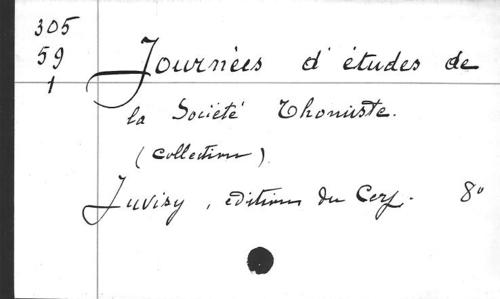 305
59
1
Journées d'études de
la Société Thomiste.
(Collection).
Juvisy, editions du Cerf. 8°